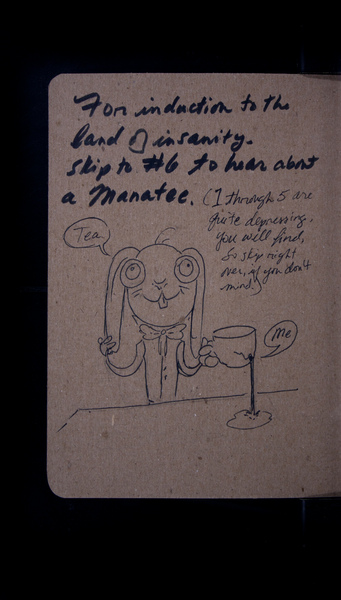 For induction to the
land of insanity.
skip to #6 to hear about
a Manatee. (1 through 5 are
quite depressing.
you will find,
So skip right
over, if you don't
mind.)
Tea
Me